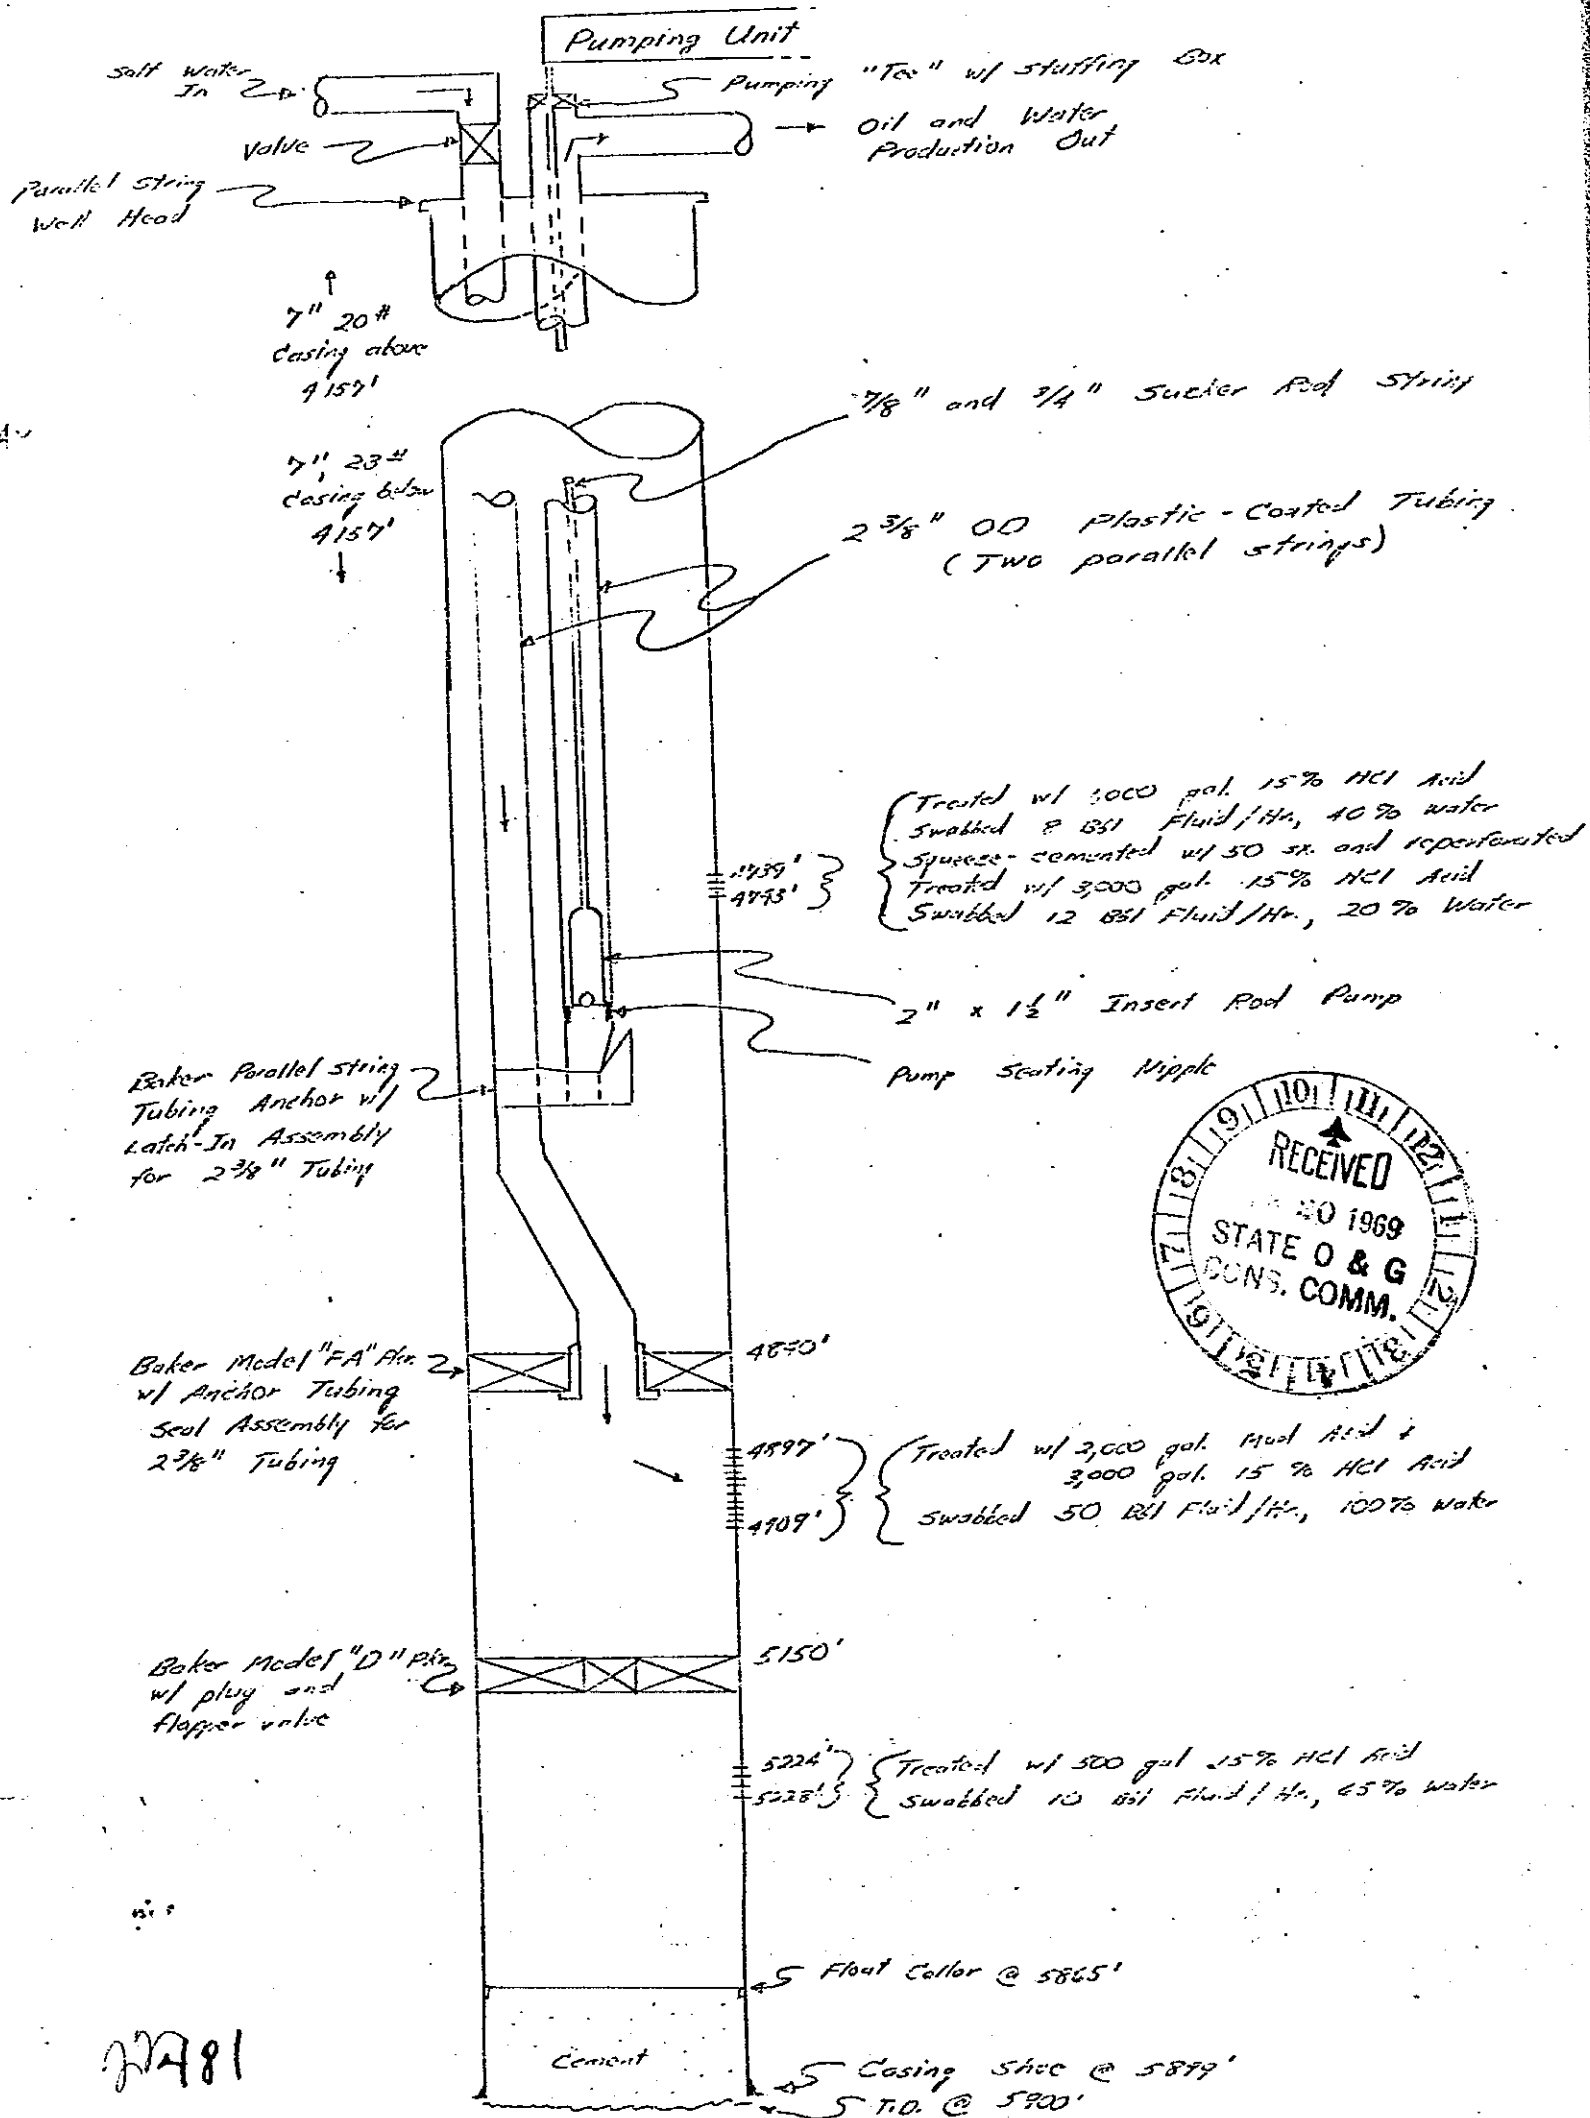 Pumping Unit
Salt Water
In
Pumping "Tee" w/ Stuffing Box
Oil and Water
Production Out
Valve
Parallel String
Well Head
7" 20#
Casing above
4157'
7/8" and 3/4" Sucker Rod String
7", 23#
Casing below
4157'
2 3/8" OD Plastic-Coated Tubing
(Two parallel strings)
Treated w/ gal. 15% HCl Acid
Swabbed 8 Bbl Fluid/Hr., 40% water
Squeeze-cemented w/ 50 sx. and reperforated
Treated w/ 3,000 gal. 15% HCl Acid
Swabbed 12 Bbl Fluid/Hr., 20% Water
4739'
4743'
2" x 1 1/2" Insert Rod Pump
Pump Seating Nipple
Baker Parallel String
Tubing Anchor w/
Latch-In Assembly
for 2 3/8" Tubing
9 10 11 12 1 2 3 4 5 6 7 8
RECEIVED
1969
STATE O & G
CONS. COMM.
Baker Model "FA" Pkr.
w/ Anchor Tubing
Seal Assembly for
2 3/8" Tubing
4840'
4897'
4909'
Treated w/ 2,000 gal. Mud Acid &
3,000 gal. 15% HCl Acid
Swabbed 50 Bbl Fluid/Hr., 100% water
Baker Model "D" Pkr.
w/ plug and
flapper valve
5150'
5224'
5228'
Treated w/ 500 gal 15% HCl Acid
Swabbed 10 Bbl Fluid/Hr., 65% water
Float Collar @ 5865'
Cement
Casing Shoe @ 5899'
T.D. @ 5900'